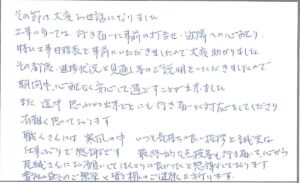 その節は大変お世話になりました
工事に当っては 行き届いた事前の打合せ・近隣への心配り、
特に工事日程表を事前にいただきましたので大変助かりました
その都度、進捗状況と見通し等のご説明をいただきましたので
期間中、心配なく安心して過ごすことが出来ました
また 途中 思わぬ出来ごとにも 行き届いた対応をしてくださり
有難く思っております
職人さんには 寒風の中 いつも気持ちの良い挨拶と誠実な
仕事ぶりで感謝です 最終的な点検等も行き届き心から
見城さんにお願いしてほんとうに良かったと感謝しております
貴社の益々のご繁栄と皆々様のご健康をお祈ります。